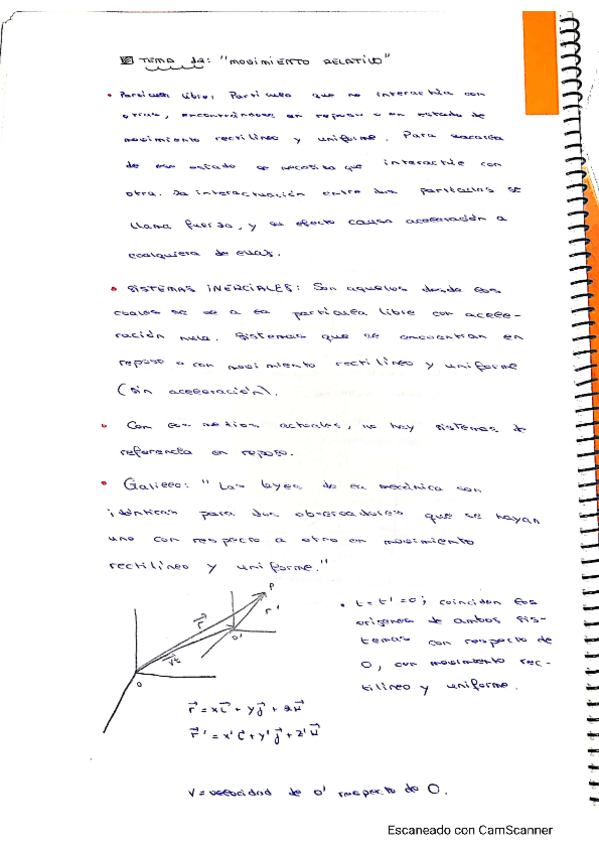 TEMA 12: "MOVIMIENTO RELATIVO"
• Partícula libre: Partícula que no interactúa con
otras, encontrándose en reposo o en estado de
movimiento rectilíneo y uniforme. Para sacarla
de ese estado se necesita que interactúe con
otra. La interactuación entre dos partículas se
llama fuerza, y su efecto causa aceleración a
cualquiera de ellas.
• SISTEMAS INERCIALES: Son aquellos desde los
cuales se ve a la partícula libre con acele-
ración nula. Sistemas que se encuentran en
reposo o con movimiento rectilíneo y uniforme
(sin aceleración).
• Con los medios actuales, no hay sistemas de
referencia en reposo.
• Galileo: "Las leyes de la mecánica son
idénticas para dos observadores que se hayan
uno con respecto a otro en movimiento
rectilíneo y uniforme."
P
r⃗ r'
O'
v⃗t
O
• t = t' = 0; coinciden los
orígenes de ambos sis-
temas con respecto de
O, con movimiento rec-
tilíneo y uniforme.
r⃗ = xi⃗ + yj⃗ + zu⃗
r⃗' = x'i⃗ + y'j⃗ + z'u⃗
V = velocidad de O' respecto de O.
Escaneado con CamScanner